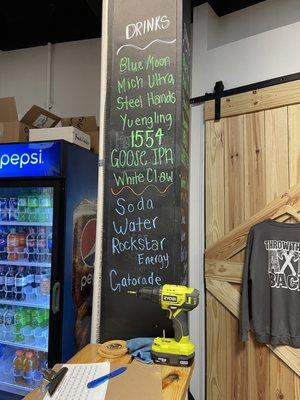 DRINKS
Blue Moon
Mich Ultra
Steel Hands
Yuengling
1554
GOOSE IPA
White Claw
Soda
Water
Rockstar
Energy
Gatorade
pepsi
RYOBI
THROW TH
BACK